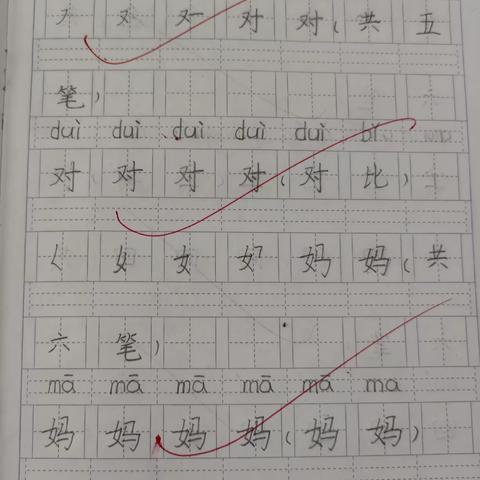 对 对(共 五
笔)
duì duì duì duì duì bǐ
对 对 对 对(对 比)
𡿨 女 女 妈 妈(共
六 笔)
mā mā mā mā mā ma
妈 妈 妈 妈(妈 妈)